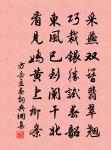 采燕双簪翡翠翘
巧裁银胜试春韶
东风已到阑干北
看见娇黄上柳条
方岳立春词典网集